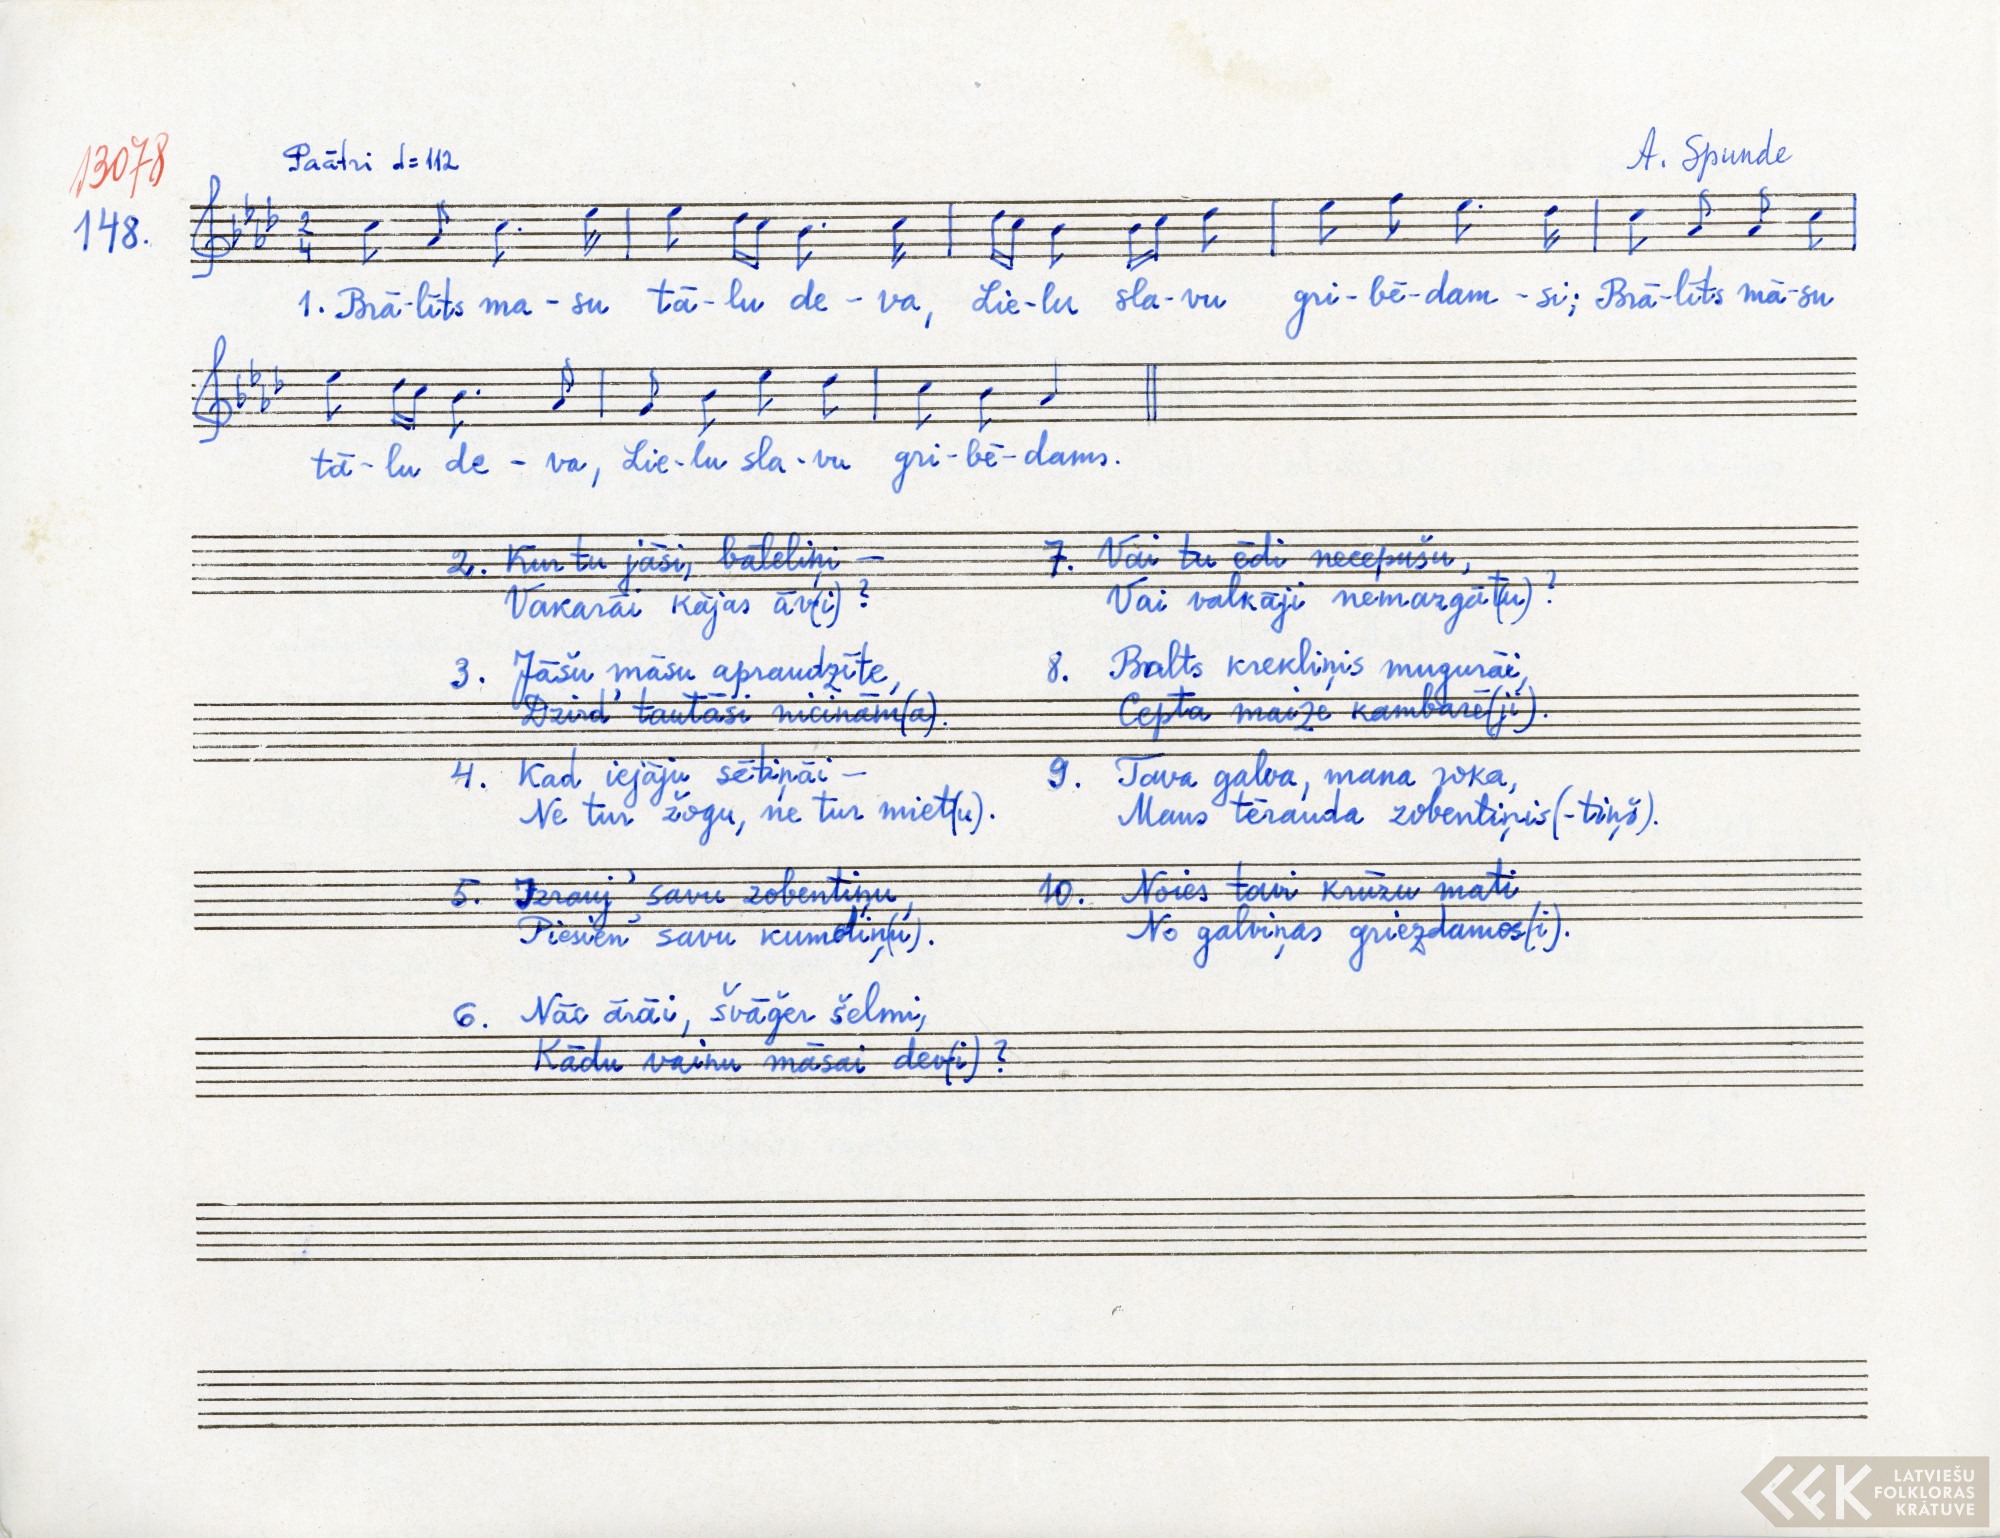 13078
Paātri d=112
A. Spunde
148.
2
4
1. Brā-līts ma-su tā-lu de-va, Lie-lu sla-vu gri-bē-dam-si; Brā-līts mā-su
tā-lu de-va, Lie-lu sla-vu gri-bē-dams.
2. Kur tu jāsi, bāleliņi –
Vakarāi kājas āv(i)?
3. Jāšu māsu apraudzīte,
Dzird' tautāsi nicinām(a).
4. Kad iejāju sētiņāi –
Ne tur žogu, ne tur miet(u).
5. Izrauj' savu zobentiņu,
Piesien' savu kumeliņ(u).
6. Nāc ārāi, švāğer šelmi,
Kādu vainu māsai dev(i)?
7. Vai tu ēdi necepušu,
Vai valkāji nemazgāt(u)?
8. Balts krekliņis mugurāi,
Cepta maize kambarē(ji).
9. Tava galva, mana roka,
Mans tērauda zobentiņis(-tiņš).
10. Noies tavi krūzu mati
No galviņas griezdamos(i).
LATVIEŠU
FOLKLORAS
KRĀTUVE